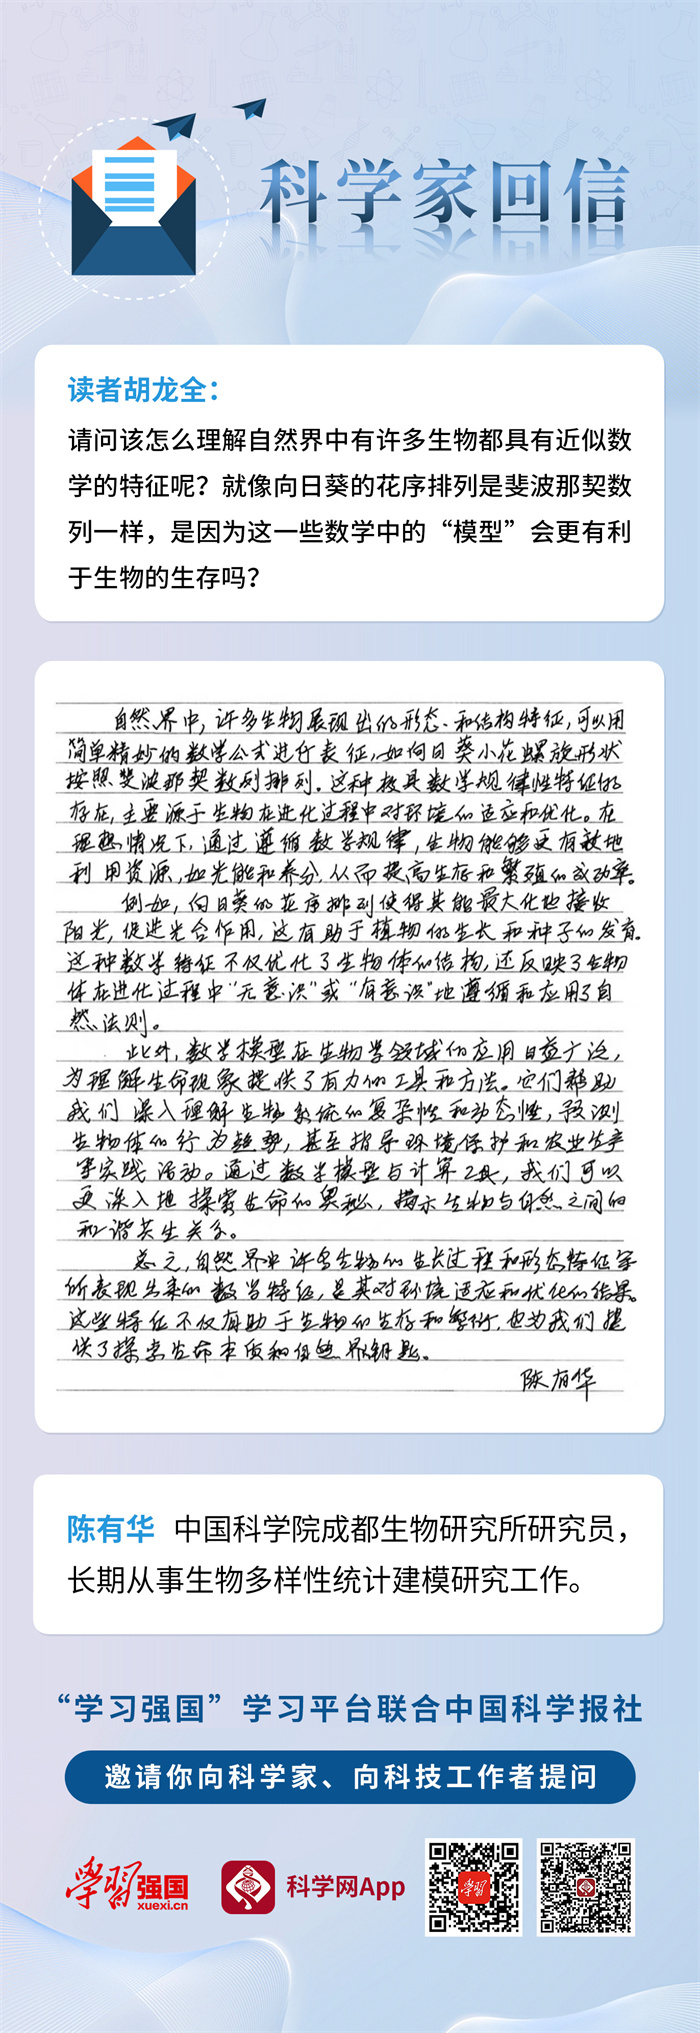 科学家回信
读者胡龙全：
请问该怎么理解自然界中有许多生物都具有近似数
学的特征呢？就像向日葵的花序排列是斐波那契数
列一样，是因为这一些数学中的“模型”会更有利
于生物的生存吗？
自然界中，许多生物展现出的形态、和结构特征，可以用
简单精妙的数学公式进行表征，如向日葵小花螺旋形状
按照斐波那契数列排列。这种极具数学规律性特征的
存在，主要源于生物在进化过程中对环境的适应和优化。在
理想情况下，通过遵循数学规律，生物能够更有效地
利用资源，如光能和养分，从而提高生存和繁殖的成功率。
例如，向日葵的花序排列使得其能最大化地接收
阳光，促进光合作用，这有助于植物的生长和种子的发育。
这种数学特征不仅优化了生物体的结构，还反映了生物
体在进化过程中“无意识”或“有意识”地遵循和应用了自
然法则。
此外，数学模型在生物学领域的应用日益广泛，
为理解生命现象提供了有力的工具和方法。它们帮助
我们深入理解生物系统的复杂性和动态性，预测
生物体的行为趋势，甚至指导环境保护和农业生产
等实践活动。通过数学模型与计算工具，我们可以
更深入地探索生命的奥秘，揭示生物与自然之间的
和谐共生关系。
总之，自然界中许多生物的生长过程和形态特征等
所表现出来的数学特征，是其对环境适应和优化的结果。
这些特征不仅有助于生物的生存和繁衍，也为我们提
供了探索生命本质和自然界钥匙。
陈有华
陈有华 中国科学院成都生物研究所研究员，
长期从事生物多样性统计建模研究工作。
“学习强国”学习平台联合中国科学报社
邀请你向科学家、向科技工作者提问
学习强国
xuexi.cn
科学网App
学习